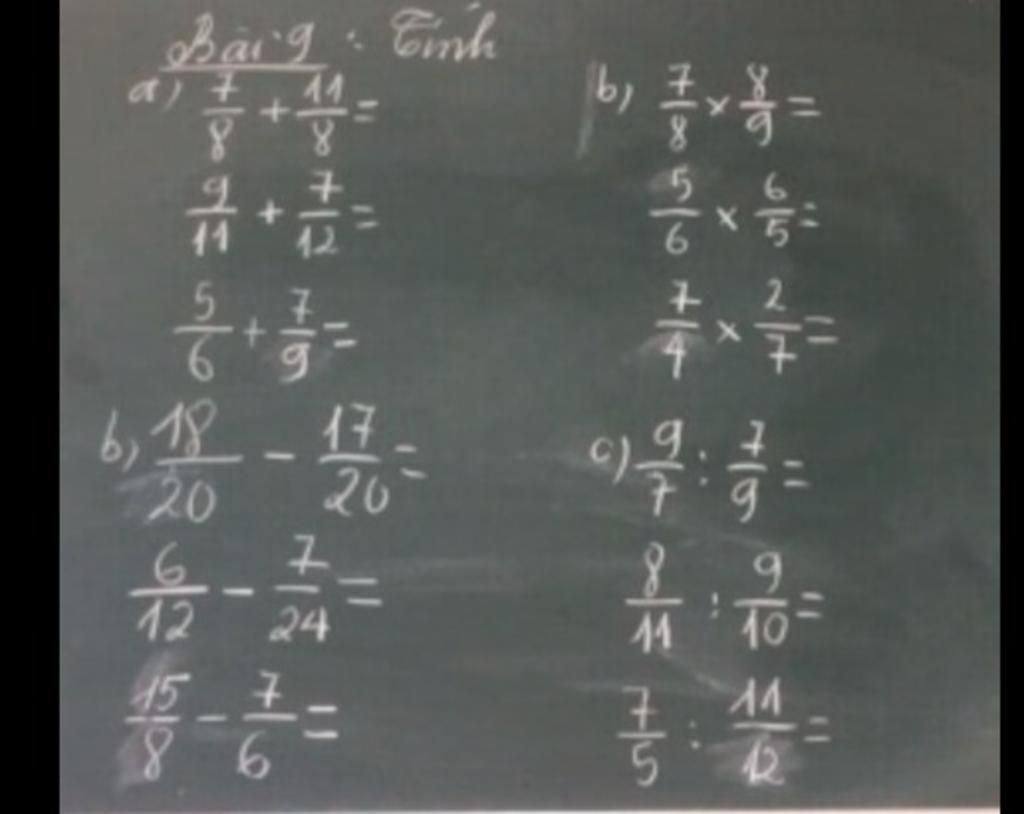 Bài 9 : Tính
a) 7/8 + 11/8 =
9/11 + 7/12 =
5/6 + 7/9 =
b) 18/20 - 17/20 =
6/12 - 7/24 =
15/8 - 7/6 =
b) 7/8 × 8/9 =
5/6 × 6/5 =
7/4 × 2/7 =
c) 9/7 : 7/9 =
8/11 : 9/10 =
7/5 : 11/12 =